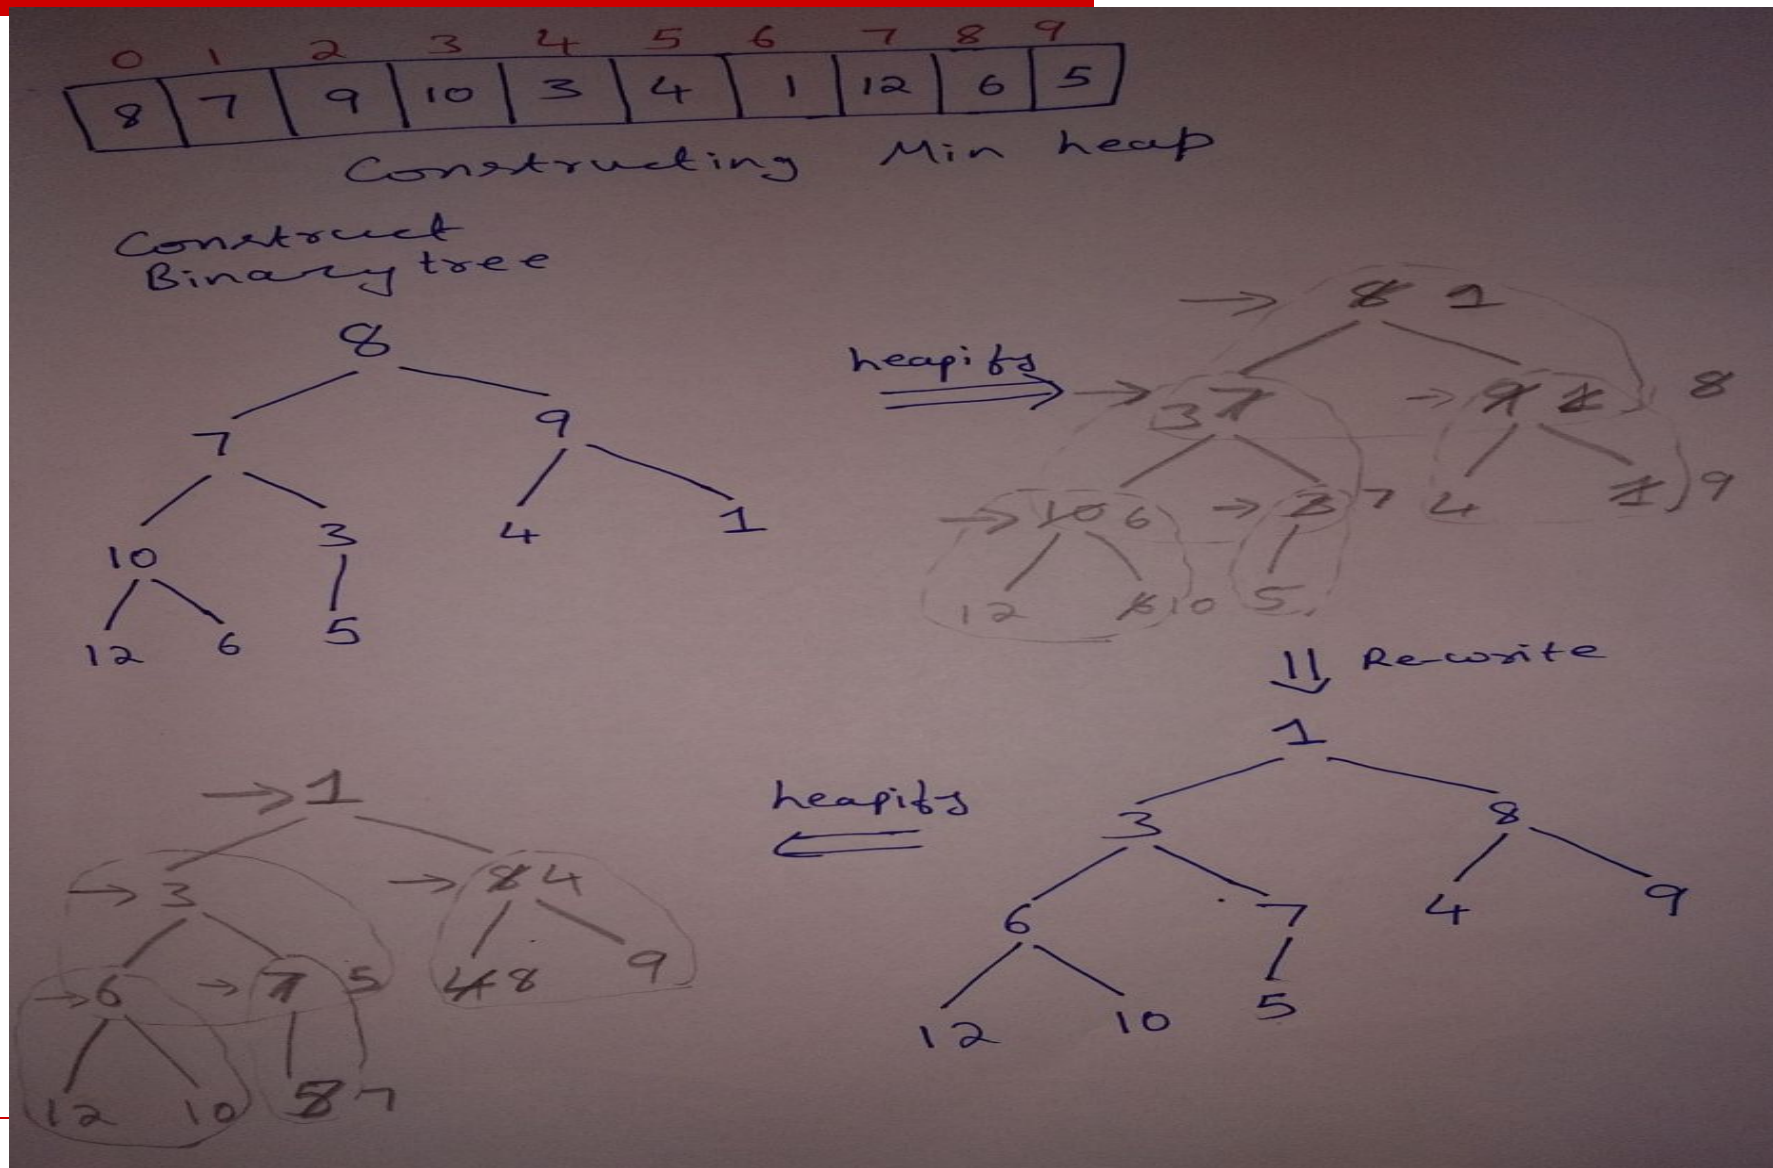 0 1 2 3 4 5 6 7 8 9
8 7 9 10 3 4 1 12 6 5
Constructing Min heap
Construct
Binary tree
8
7 9
10 3 4 1
12 6 5
heapify
8 1
3 7 9 1 8
10 6 3 7 4 1 9
12 6 10 5
Re-write
1
3 8
6 7 4 9
12 10 5
heapify
1
3 8 4
6 7 5 4 8 9
12 10 5 7